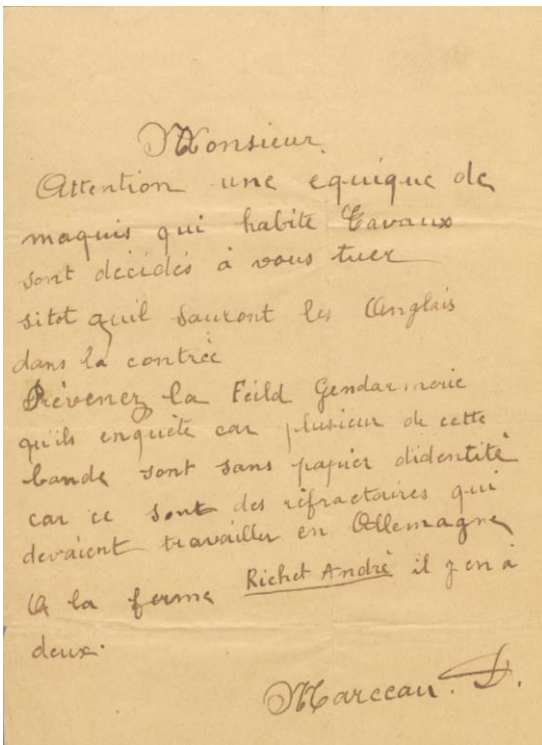 Monsieur.
Attention une equique de
maquis qui habite Tavaux
sont décidés à vous tuer
sitot quil sauront les Anglais
dans la contrée
Prévenez la Feild Gendarmerie
qu'ils enquête car plusieur de cette
bande sont sans papier didentité
car ce sont des réfractaires qui
devaient travailler en Allemagne
A la ferme Richet André il y en à
deux.
Marceau. D.